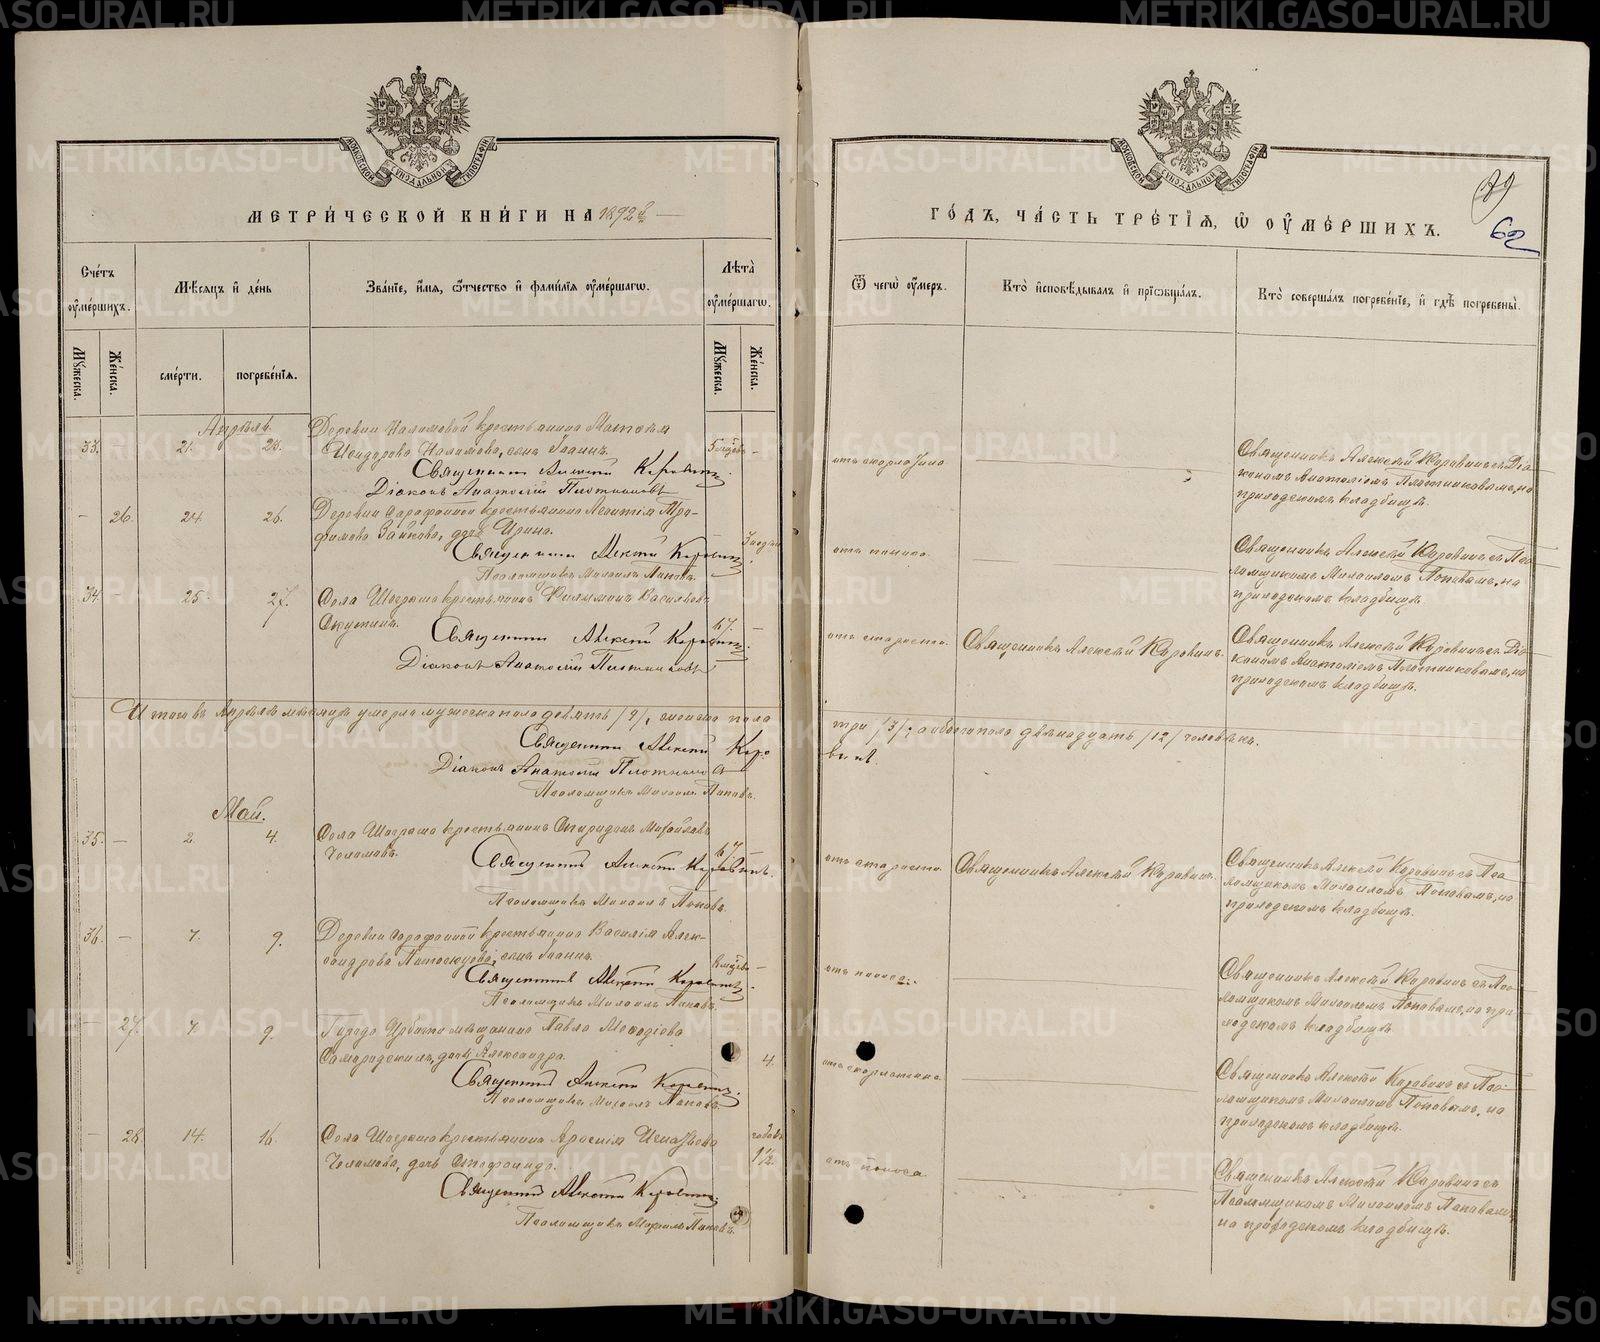 МЕТРИЧЕСКОЙ КНИГИ НА 1892й
ГОДЪ, ЧАСТЬ ТРЕТІЯ, Ѡ ОУМЕРШИХЪ.
62
Счетъ оумершихъ.
Мѣсяцъ и день
Званіе, имя, отчество и фамилія оумершагѡ.
Лѣта оумершагѡ.
Ѿ чегѡ оумеръ.
Кто исповѣдывалъ и пріобщалъ.
Кто совершалъ погребеніе, и гдѣ погребены.
Мужеска.
Женска.
смерти.
погребенія.
Мужеска.
Женска.
Апрѣль.
33. – 21. 23.
Деревни Налимовой крестьянина Матвѣя
Исидорова Налимова, сынъ Іоаннъ.
Священникъ Алексѣй Коровинъ.
Діаконъ Анатолій Плотниковъ
Священникъ Алексѣй Коровинъ съ Діа-
кономъ Анатоліемъ Плотниковымъ, на
приходскомъ кладбищѣ.
– 26. 24. 26.
Деревни Сарафановой крестьянина Леонтія Тро-
фимова Зайкова, дочь Ирина.
Священникъ Алексѣй Коровинъ
Псаломщикъ Михаилъ Поповъ.
отъ поноса.
Священникъ Алексѣй Коровинъ съ Пса-
ломщикомъ Михаиломъ Поповымъ, на
приходскомъ кладбищѣ.
34 – 25. 27.
Села Шогриша крестьянинъ Филимонъ Васильевъ
67.
Священникъ Алексѣй Коровинъ
Діаконъ Анатолій Плотниковъ
отъ старости.
Священникъ Алексѣй Коровинъ.
Священникъ Алексѣй Коровинъ съ Діа-
кономъ Анатоліемъ Плотниковымъ, на
приходскомъ кладбищѣ.
Итого въ Апрѣлѣ мѣсяцѣ умерло мужеска пола девять /9/, женска пола
три /3/, а обоего пола двѣнадцать /12/ человѣкъ.
Священникъ Алексѣй Коро
винъ.
Діаконъ Анатолій Плотниковъ
Псаломщикъ Михаилъ Поповъ.
Май.
35. – 2. 4.
Села Шогриша крестьянинъ Спиридонъ Михайловъ
Чоломовъ.
67.
Священникъ Алексѣй Коровинъ.
Псаломщикъ Михаилъ Поповъ.
отъ старости.
Священникъ Алексѣй Коровинъ.
Священникъ Алексѣй Коровинъ съ Пса-
ломщикомъ Михаиломъ Поповымъ, на
приходскомъ кладбищѣ.
36. – 7. 9.
Деревни Сарафановой крестьянина Василія Алек-
сандрова сынъ Іоаннъ.
Священникъ Алексѣй Коровинъ
Псаломщикъ Михаилъ Поповъ.
отъ поноса.
Священникъ Алексѣй Коровинъ съ Пса-
ломщикомъ Михаиломъ Поповымъ, на при-
ходскомъ кладбищѣ.
– 27. 7. 9.
Города Ирбита мѣщанина Павла Меѳодіева
дочь Александра.
4.
Священникъ Алексѣй Коровинъ.
Псаломщикъ Михаилъ Поповъ.
отъ скарлатины.
Священникъ Алексѣй Коровинъ съ Пса-
ломщикомъ Михаиломъ Поповымъ, на
приходскомъ кладбищѣ.
– 28. 14. 16.
Села Шогриша крестьянина
Чоломова, дочь Стефанида.
1½
Священникъ Алексѣй Коровинъ
Псаломщикъ Михаилъ Поповъ.
отъ поноса
Священникъ Алексѣй Коровинъ съ
Псаломщикомъ Михаиломъ Поповымъ,
на приходскомъ кладбищѣ.
METRIKI.GASO-URAL.RU